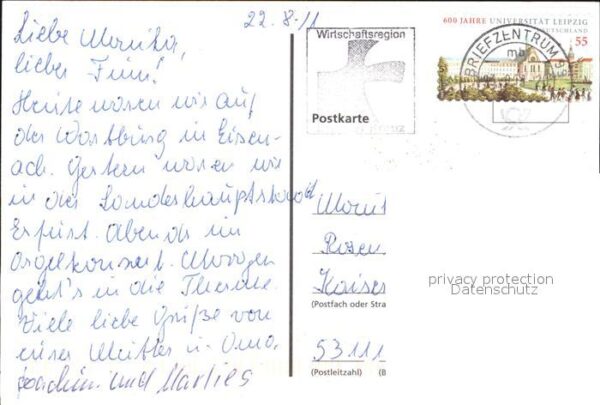 22.8.11
Liebe Monika,
lieber Finn!
Heute waren wir auf
der Wartburg in Eisen-
ach. Gestern waren wir
in der Landeshauptstadt
Erfurt. Abends im
Orgelkonzert. Morgen
geht's in die Therme.
Viele liebe Grüße von
eurer Mutter u. Oma
Joachim und Marlies
600 JAHRE UNIVERSITÄT LEIPZIG
DEUTSCHLAND
55
Wirtschaftsregion
BRIEFZENTRUM
mb
Postkarte
Moni
Rosen
Kaiser
(Postfach oder Stra
53111
(Postleitzahl) (B
privacy protection
Datenschutz